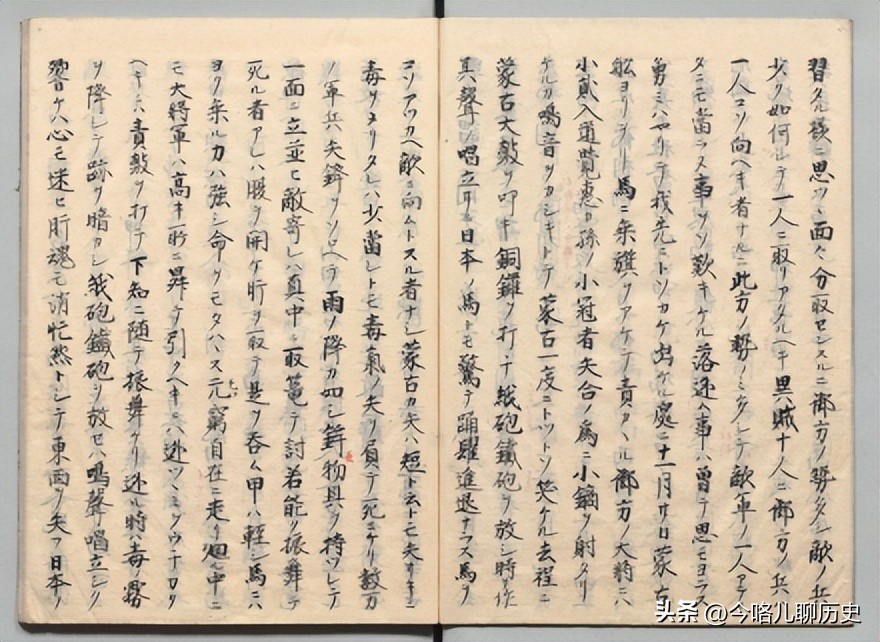 習タル様ニ思ツヽ面々分取センスルニ御方ノ勢多シ敵ノ兵
少シ如何シテ一人ニ取リアタルヘキ異賊十人ニ御方ノ兵
一人コソ向ヘキ者ナルニ此方ノ勢ノミ多シテ敵軍ノ一人アテ
タニモ當ラヌ事ヲソ歎キケル落延人事ハ曽テ思モヨラス
勇ミハヤリテ我先ニトソカケ出ケル處ニ十一月廿日蒙古
舩ヨリヲリ馬ニ乗旗ヲアケテ責カヽル御方ノ大将ニハ
小貳入道覺恵カ孫ノ小冠者矢合ノ為ニ小鏑ヲ射タリ
ケルカ鳴音ヲカシキトテ蒙古一度ニトツトソ笑ケル去程ニ
蒙古大皷ヲ叩キ銅鑼ヲ打チ紙砲鐵砲ヲ放シ時作
其聲ノ唱立リニ日本ノ馬トモ驚テ踊躍進退ナラス馬ヲ
コソアツカヘ敵ニ向ムトスル者ナシ蒙古カ矢ハ短ト云トモ矢ノ根ニ
毒ヲヌリタレハ少當レトモ毒氣ノ矢ヲ負テ死ニケリ数万
ノ軍兵矢鋒ヲソロヘテ雨ノ降カ如シ鉾物具ヲ持ツレテ
一面ニ立並ヒ敵寄レハ真中ニ取篭テ討若能ク振舞テ
死ル者アレハ腹ヲ開ケ肝ヲ取テ是ヲ呑ム甲ハ軽シ馬ニハ
ヨク乗ル力ハ強シ命ヲモタハス元窮自在ニ走リ廻ル中ニ
モ大将軍ハ高キ所ニ昇テ引クヘキニハ逃ツヽミヲウチカク
ヘキニハ責皷ヲ打テ下知ニ随テ振舞ケリ逃ル時ハ毒霧
ヲ降シテ跡ヲ暗カシ紙砲鐵砲ヲ放セハ鳴聲唱立シク
響ケハ心モ迷ヒ肝魂モ消忙然トシテ東西ヲ失フ日本ノ
头条 @今咯儿聊历史